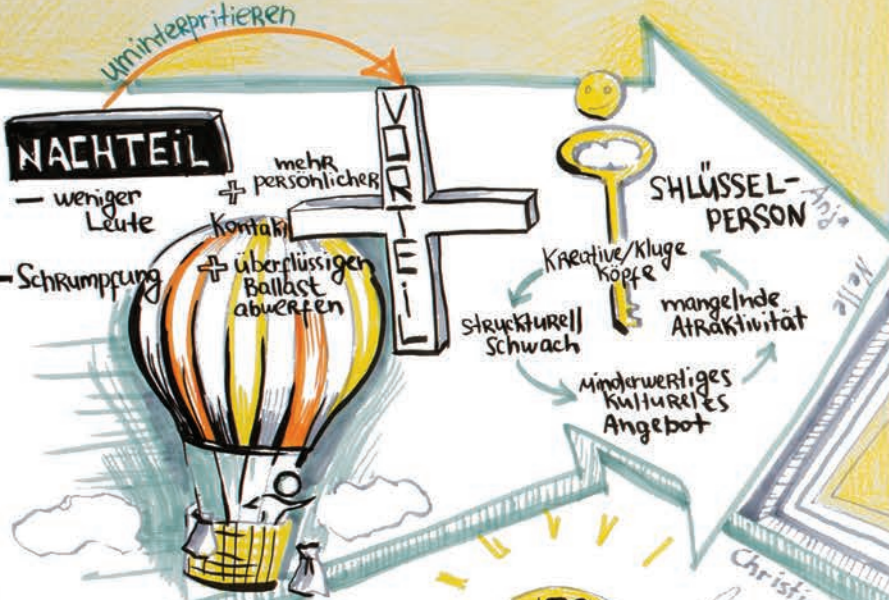 uminterpritieren
NACHTEIL
- weniger
Leute
- Schrumpfung
+ mehr
persönlicher
Kontakt
+ überflüssigen
Ballast
abwerfen
VORTEIL
SHLÜSSEL-
PERSON
Kreative/Kluge
Köpfe
struckturell
Schwach
mangelnde
Atraktivität
minderwertiges
Kulturelles
Angebot
Anja
Nelle